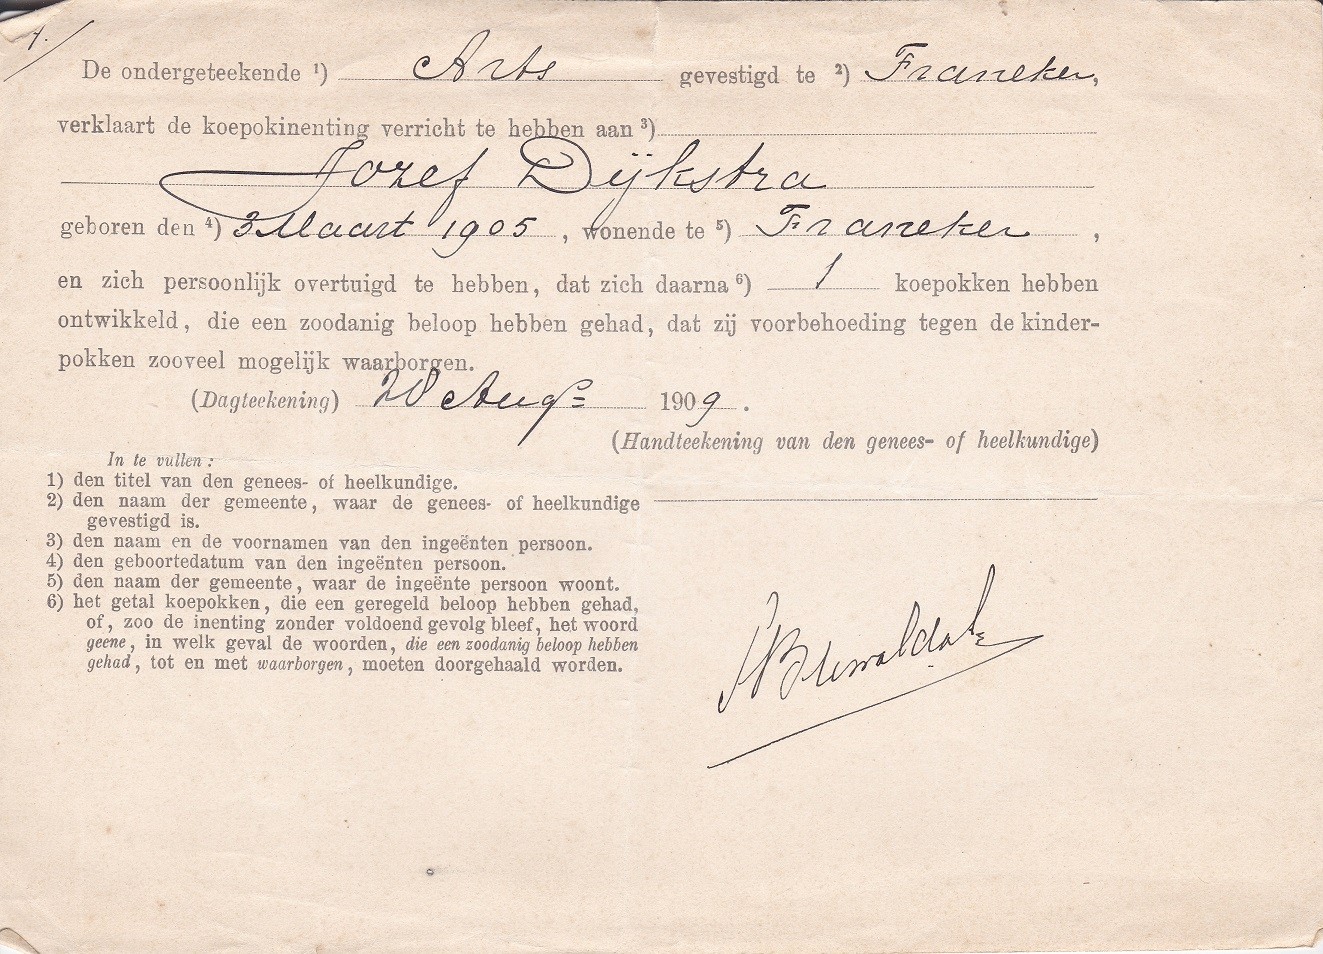 1.
De ondergeteekende ¹) Arts gevestigd te ²) Franeker,
verklaart de koepokinenting verricht te hebben aan ³)
Jozef Dijkstra
geboren den ⁴) 3 Maart 1905, wonende te ⁵) Franeker,
en zich persoonlijk overtuigd te hebben, dat zich daarna ⁶) 1 koepokken hebben
ontwikkeld, die een zoodanig beloop hebben gehad, dat zij voorbehoeding tegen de kinder-
pokken zooveel mogelijk waarborgen.
(Dagteekening) 28 Augs 1909.
(Handteekening van den genees- of heelkundige)
In te vullen:
1) den titel van den genees- of heelkundige.
2) den naam der gemeente, waar de genees- of heelkundige
gevestigd is.
3) den naam en de voornamen van den ingeënten persoon.
4) den geboortedatum van den ingeënten persoon.
5) den naam der gemeente, waar de ingeënte persoon woont.
6) het getal koepokken, die een geregeld beloop hebben gehad,
of, zoo de inenting zonder voldoend gevolg bleef, het woord
geene, in welk geval de woorden, die een zoodanig beloop hebben
gehad, tot en met waarborgen, moeten doorgehaald worden.